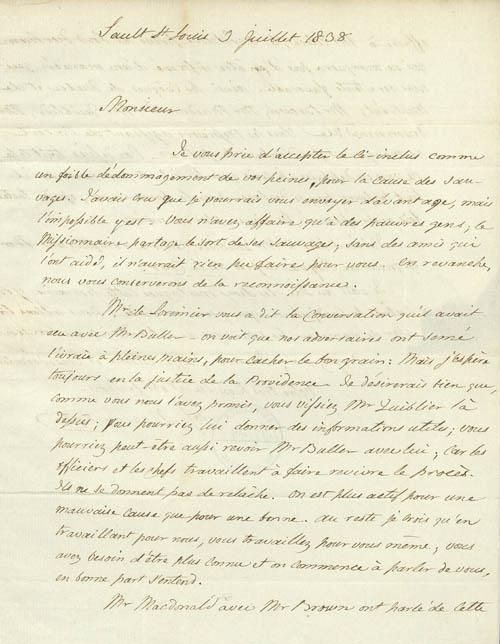 Sault St Louis 3 Juillet 1838
Monsieur
Je vous prie d'accepter le ci-inclus comme
un foible dédommagement de vos peines, pour la cause des sau-
vages. J'avais cru que je pourrais vous envoyer davantage, mais
l'impossible y est. Vous n'avez affaire qu'à des pauvres gens; le
Missionnaire partage le sort de ses sauvages; sans des amis qui
l'ont aidé, il n'aurait rien pu faire pour vous. En revanche,
nous vous conserverons de la reconnoissance.
Mr de Lorimier vous a dit la Conversation qu'il avait
eu avec Mr Buller - on voit que nos adversaires ont semé
l'ivraie à pleines mains, pour cacher le bon grain: Mais j'espère
toujours en la justice de la Providence. Je désirerais bien que,
comme vous nous l'avez promis, vous vissiez Mr Quiblier là
dessus; vous pourriez lui donner des informations utiles; vous
pourriez peut-être aussi revoir Mr Buller avec lui; Car les
officiers et les chefs travaillent à faire revivre le procès.
Ils ne se donnent pas de relâche. On est plus actif pour une
mauvaise cause que pour une bonne. Au reste je crois qu'en
travaillant pour nous, vous travaillez pour vous même; vous
avez besoin d'être plus connu et on commence à parler de vous,
en bonne part s'entend.
Mr Macdonald avec Mr Brown ont parlé de cette